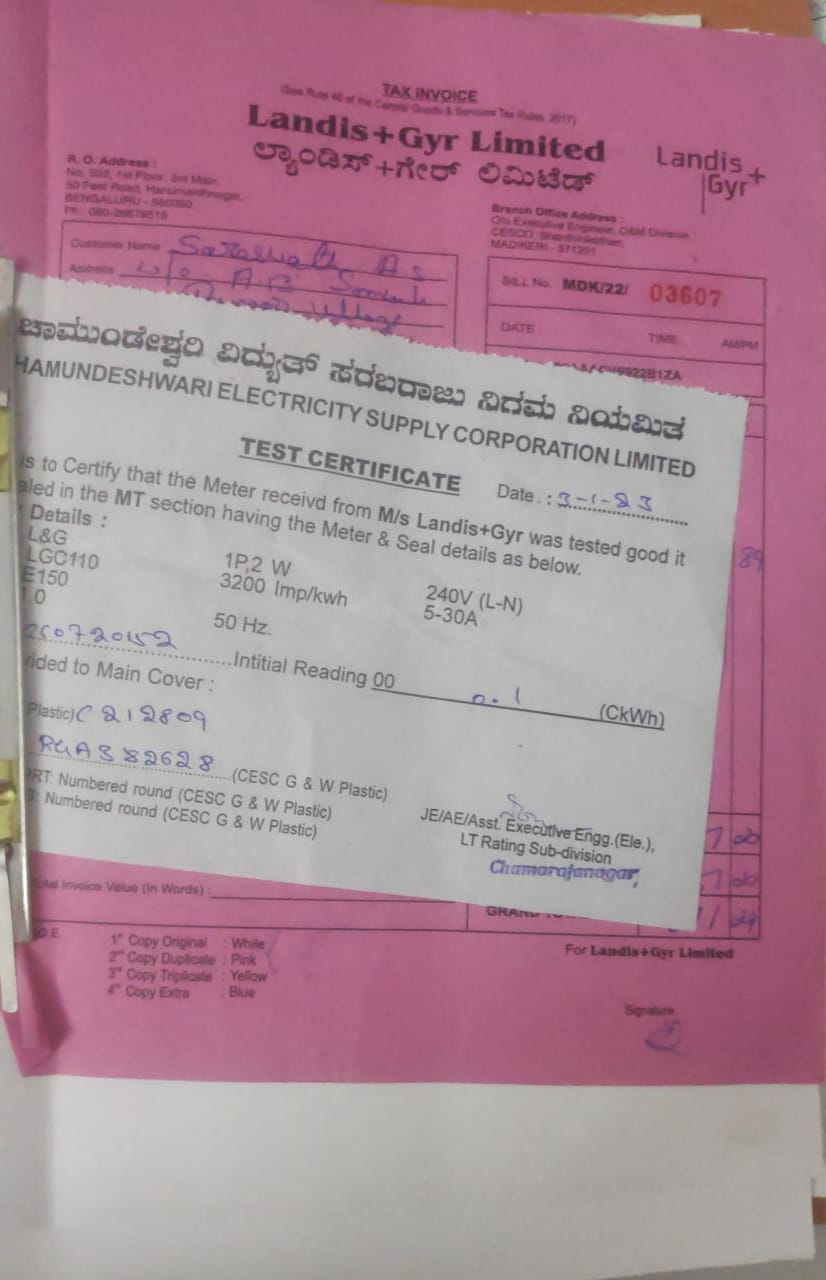 TAX INVOICE
(See Rule 46 of the Central Goods & Services Tax Rules, 2017)
Landis+Gyr Limited
ಲ್ಯಾಂಡಿಸ್+ಗೇರ್ ಲಿಮಿಟೆಡ್
Landis+
Gyr
R. O. Address :
No. 503, 1st Floor, 3rd Main,
50 Feet Road, Hanumanthnagar,
BENGALURU - 560050
Ph: 080-26679518
Branch Office Address :
O/o Executive Engineer, O&M Division
CESCO,
MADIKERI - 571201
Customer Name
Address
Village
BILL No. MDK/22/ 03607
DATE : TIME AM/PM
922B1ZA
ಚಾಮುಂಡೇಶ್ವರಿ ವಿದ್ಯುತ್ ಸರಬರಾಜು ನಿಗಮ ನಿಯಮಿತ
HAMUNDESHWARI ELECTRICITY SUPPLY CORPORATION LIMITED
TEST CERTIFICATE
Date . : 3-1-23
is to Certify that the Meter receivd from M/s Landis+Gyr was tested good it
aled in the MT section having the Meter & Seal details as below.
Details :
L&G 1P,2 W 240V (L-N)
LGC110 3200 Imp/kwh 5-30A
E150
1.0 50 Hz.
Intitial Reading 00 0.1 (CkWh)
ided to Main Cover :
Plastic) C 212809
382628 (CESC G & W Plastic)
RT: Numbered round (CESC G & W Plastic)
: Numbered round (CESC G & W Plastic)
JE/AE/Asst. Executive Engg.(Ele.),
LT Rating Sub-division
Chamarajanagar,
89
Total Invoice Value (In Words) :
GRAND
1st Copy Original : White
2nd Copy Duplicate : Pink
3rd Copy Triplicate : Yellow
4th Copy Extra : Blue
For Landis+Gyr Limited
Signature